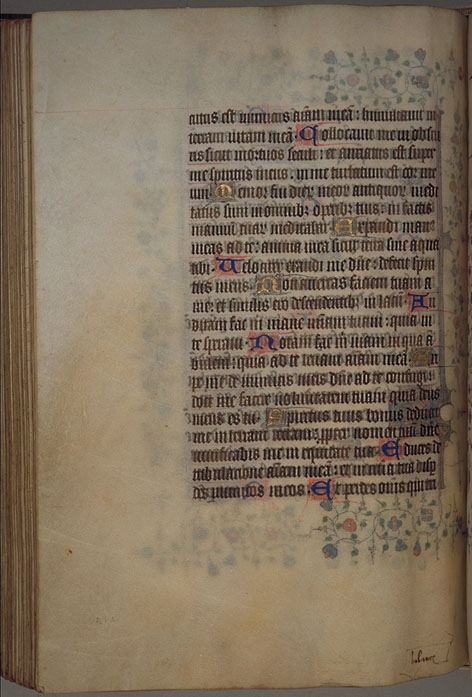 cutus est inimicus aīam meā : humiliauit in
terram uitam meā . Collocauit me in obscu
ris sicut mortuos seculi : et anxiatus est super
me spiritus meus . in me turbatum est cor me
um . Memor fui dier meor antiquor medi
tatus sum in omnibz operibz tuis : in factis
manuū tuar meditabar . Expandi man
meas ad te : anima mea sicut terra sine aqua
tibi . Uelociter exaudi me dn̄e : defecit spiri
tus meus . Non auertas faciem tuam a
me : et similis ero descendentibz in lacū . Au
ditam fac m̄ mane mīam tuam : quia in
te speraui . Notam fac m̄ uiam in qua ā
bulem : quia ad te leuaui aīam meā . Eri
pe me de inimicis meis dn̄e ad te confugi :
doce me facere uolūtatem tuam quia deus
meus es tu . Spiritus tuus bonus deducet
me in terram rectam : ppter nomen tuū dn̄e
uiuificabis me in equitate tua . Educes de
tribulacione aīam meā : et in mīa tua disp
des inimicos meos . Et perdes om̄s qui tri